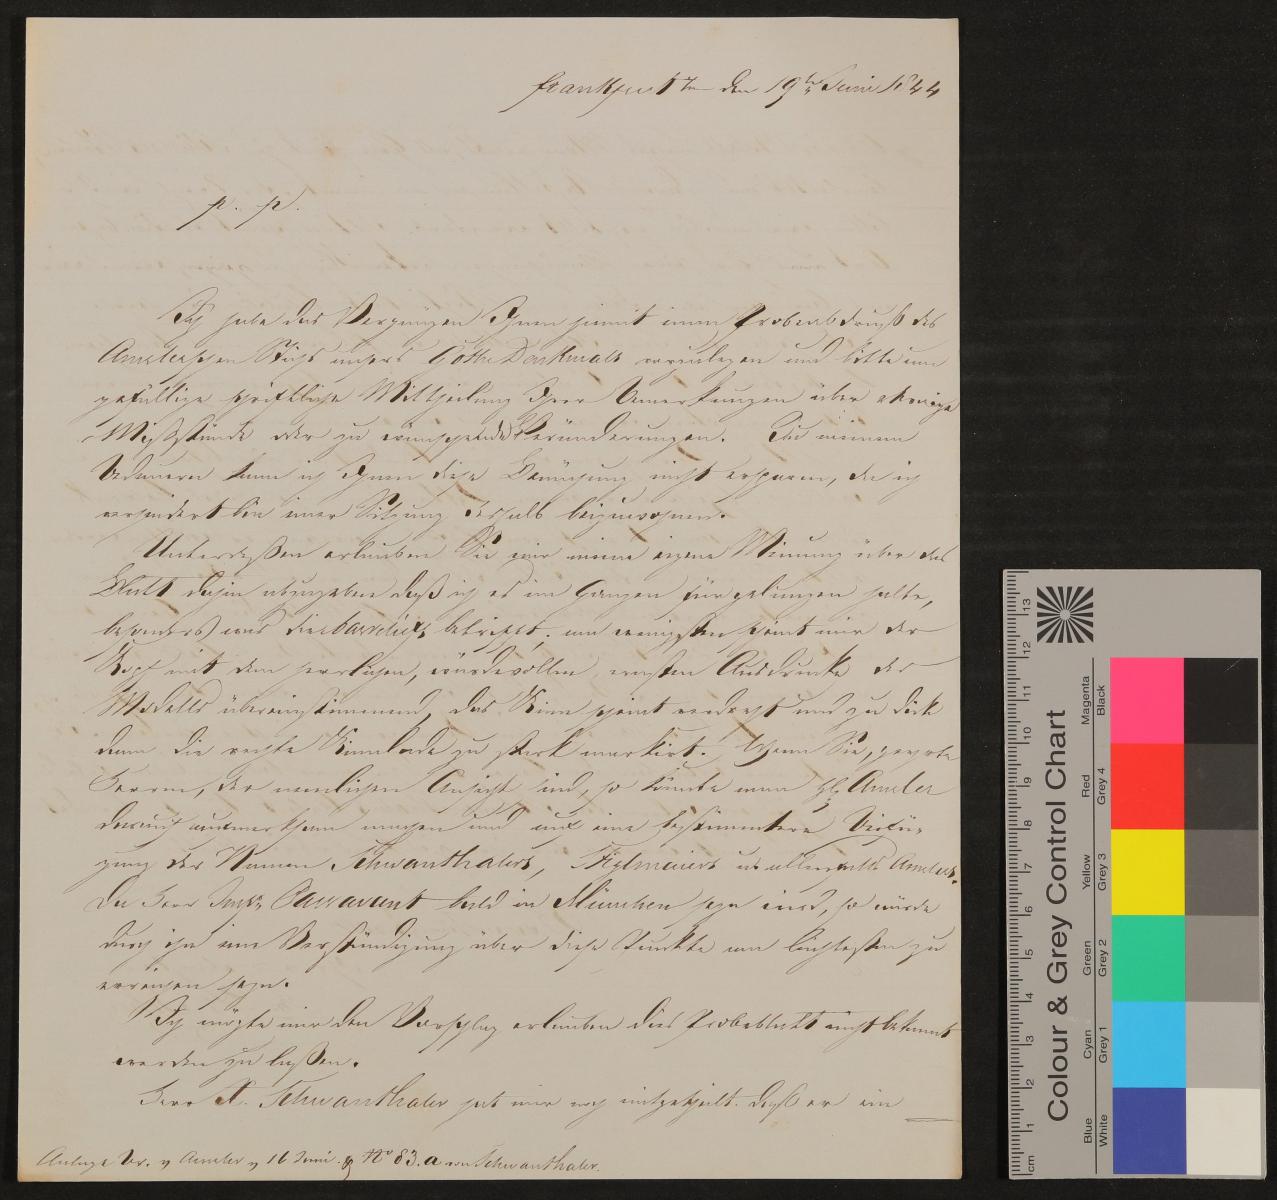 Frankfurt a/m den 19ten Juni 1844
p. p.
Ich habe das Vergnügen Ihnen hiemit einen Probeabdruck des
Amslerschen Stichs unsers Göthe Denkmals vorzulegen und bitte um
gefällige schriftliche Mittheilung Ihrer Bemerkungen über etwaige
Mißstände oder zu wünschende Veränderungen. Zu meinem
Bedauern kann ich Ihnen diese Bemühung nicht ersparen, da ich
verhindert bin einer Sitzung deshalb beizuwohnen.
Unterdeßen erlauben Sie mir meine eigene Meinung über das
Blatt dahin abzugeben daß ich es im Ganzen für gelungen halte,
besonders was die basreliefs betrifft. am wenigsten scheint mir der
Kopf mit dem herrlichen, würdevollen, ernsten Ausdrucke des
Modells übereinstimmend, das Kinn scheint verdreht und zu dick
dann die rechte Kinnlade zu stark markirt. Wenn Sie, geehrte
Herren, der nemlichen Ansicht sind, so könnte man H. Amsler
darauf aufmerksam machen und auf eine bestimmtere
der Namen Schwanthalers, Stiglmaiers Amslers.
Da Herr Passavant bald in München seyn wird, so würde
durch ihn eine Verständigung über diese Punkte am leichtesten zu
erreichen seyn.
Ich möchte mir den Vorschlag erlauben dies Probeblatt nicht bekannt
werden zu laßen.
Herr X. Schwanthaler hat mir noch mitgetheilt. daß er ein
Anlage Br. v Amsler v 16 Juni. & No 83.a von Schwanthaler.
Colour & Grey Control Chart
Blue Cyan Green Yellow Red Magenta
White Grey 1 Grey 2 Grey 3 Grey 4 Black
cm 1 2 3 4 5 6 7 8 9 10 11 12 13